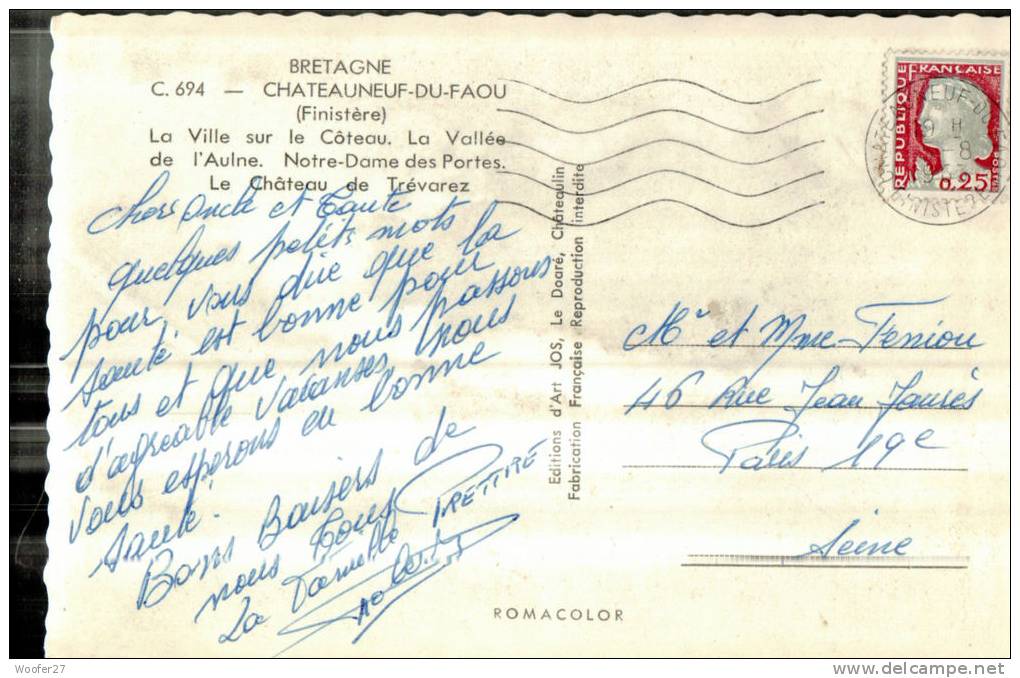 BRETAGNE
C. 694 — CHATEAUNEUF-DU-FAOU
(Finistère)
La Ville sur le Côteau. La Vallée
de l'Aulne. Notre-Dame des Portes.
Le Château de Trévarez
chers oncle et Tante
quelques petits mots
pour vous dire que la
santé est bonne pour
tous et que nous passons
d'agréable vacanses nous
vous esperons en bonne
santé.
Bons Baisers de
nous Tous
La Famille PRETTIRE
Editions d'Art JOS, Le Doaré, Châteaulin
Fabrication Française Reproduction interdite
REPUBLIQUE FRANÇAISE
POSTES
0,25
FINISTERE
Mr et Mme Ferriou
46 Rue Jean Jaurés
Paris 19e
Seine
ROMACOLOR
Woofer27
www.delcampe.net